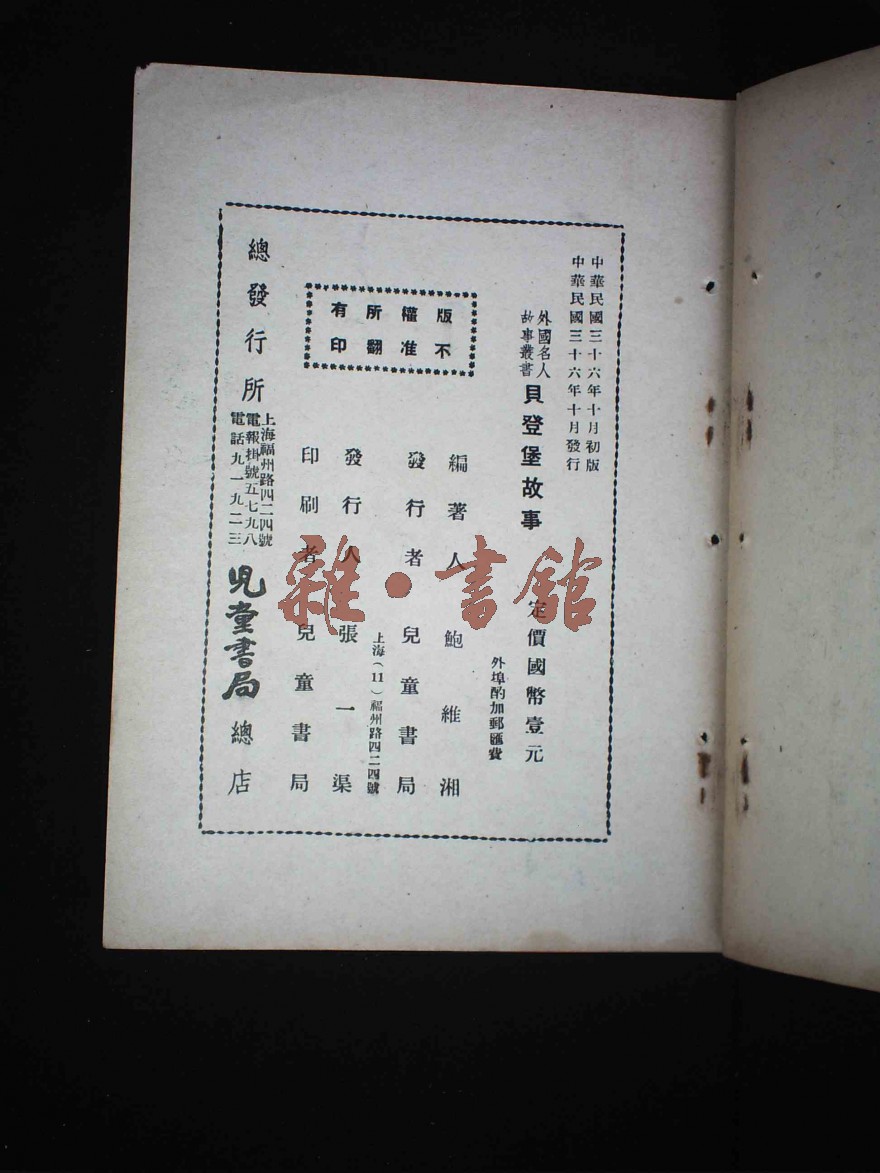 中華民國三十六年十月初版
中華民國三十六年十月發行
外國名人
故事叢書
貝登堡故事
定價國幣壹元
外埠酌加郵匯費
版權所有
不准翻印
編著人 鮑維湘
發行者 兒童書局
上海(11)福州路四二四號
發行人 張一渠
印刷者 兒童書局
總發行所
上海福州路四二四號
電報掛號五七九八
電話九一九二三
兒童書局總店
雜·書館